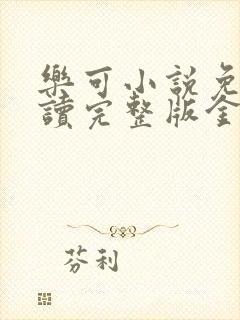 樂可小說免
讀完整版全
芬利